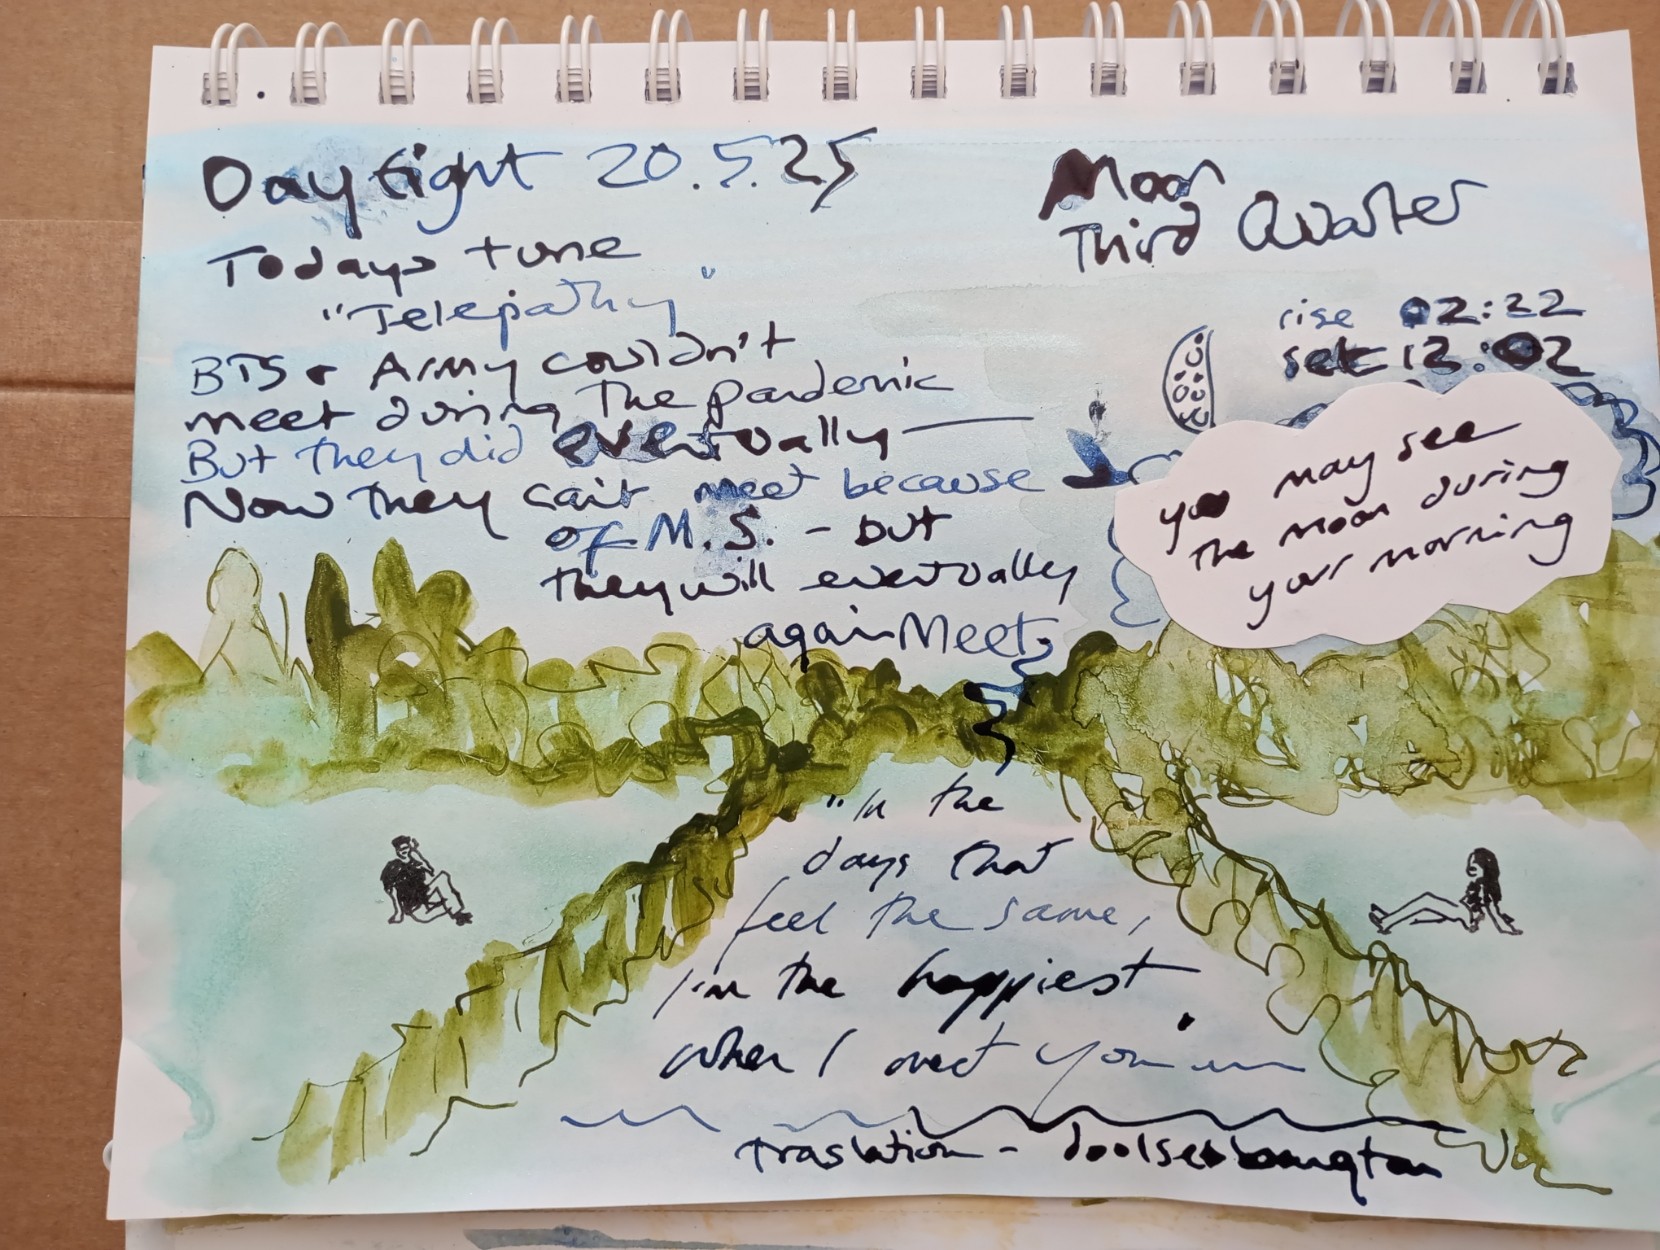 Daylight 20.5.25
Todays tune
"Telepathy"
BTS & Army couldn't
meet during the pandemic
But they did eventually —
Now they cait meet because
of M.S. - but
they will eventually
again Meet
Moon
Third Quarter
rise 02:22
set 12:02
you may see
the moon during
your morning
"In the
days that
feel the same,
I'm the happiest
when I meet you"
Traslation - doolsetbangtan